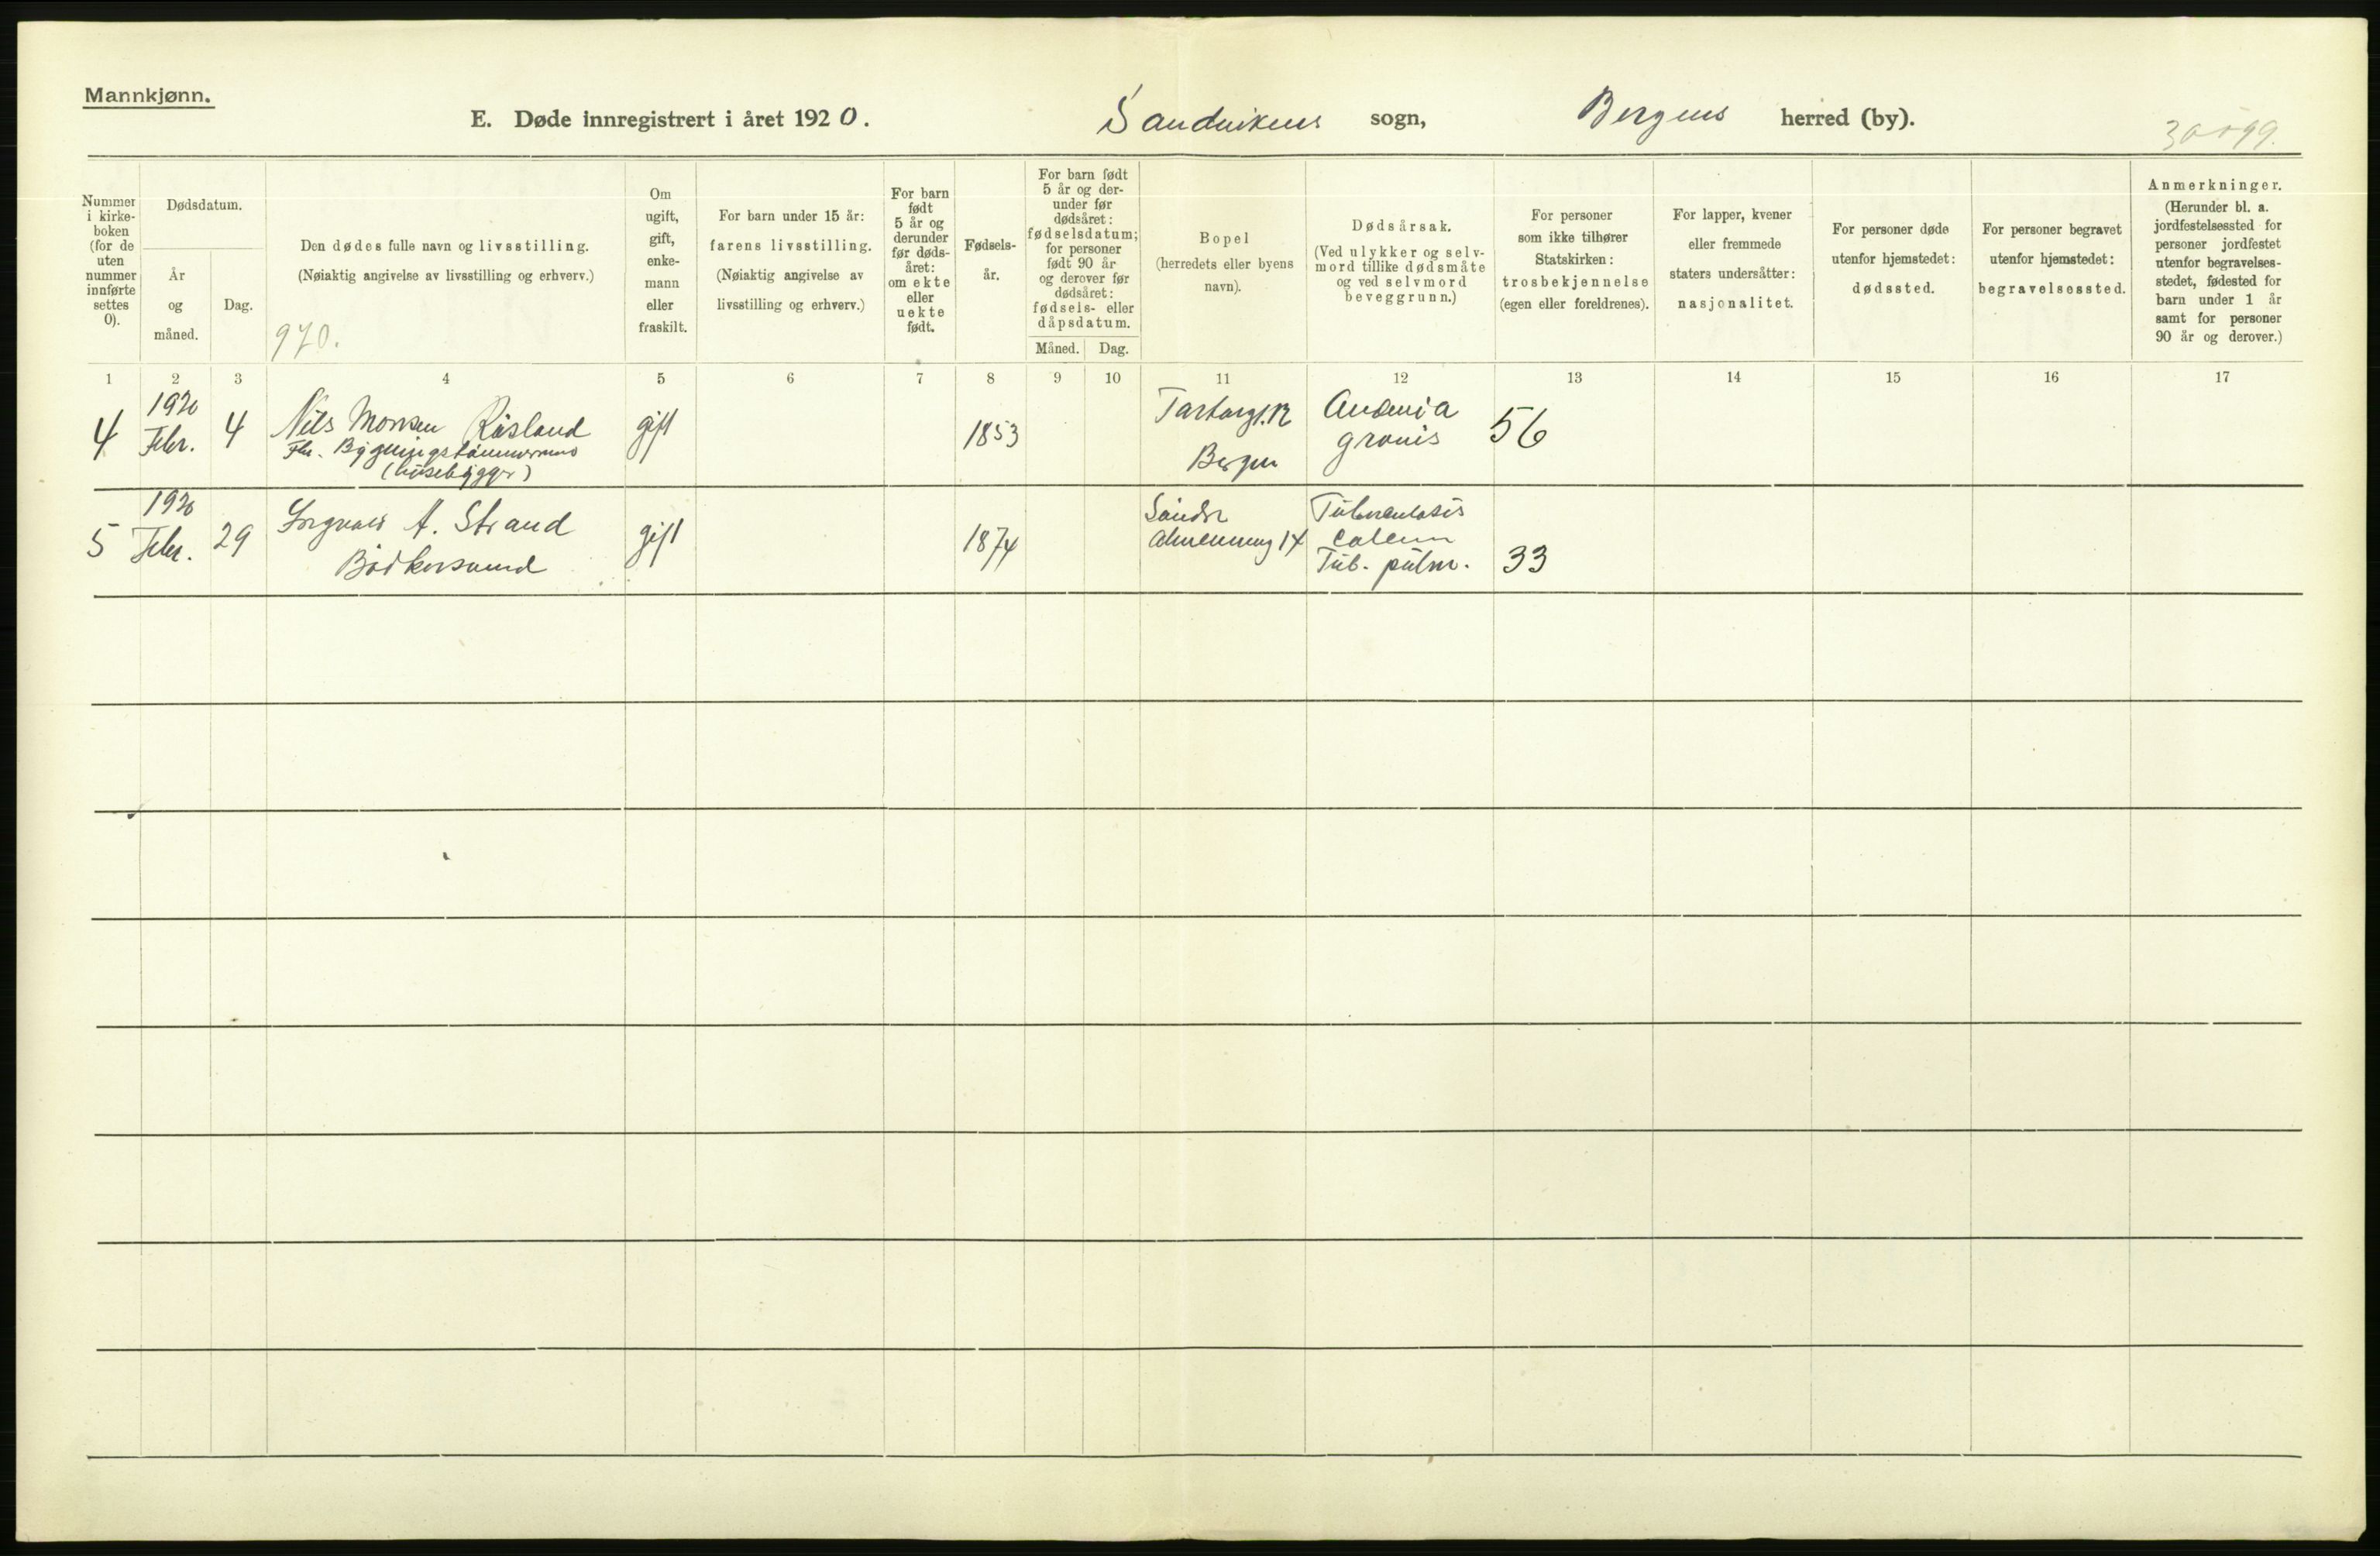 Mannkjønn.
E. Døde innregistrert i året 1920. Sandvikens sogn, Bergens herred (by).
Nummer i kirke-boken (for de uten nummer innførte settes 0).
Dødsdatum.
År og måned.
Dag.
Den dødes fulle navn og livsstilling.
(Nøiaktig angivelse av livsstilling og erhverv.)
970.
Om ugift, gift, enke-mann eller fraskilt.
For barn under 15 år:
farens livsstilling.
(Nøiaktig angivelse av livsstilling og erhverv.)
For barn født 5 år og derunder før døds-året: om ekte eller uekte født.
Fødsels-år.
For barn født 5 år og der-under før dødsåret: fødselsdatum; for personer født 90 år og derover før dødsåret: fødsels- eller dåpsdatum.
Måned. Dag.
Bopel
(herredets eller byens navn).
Dødsårsak.
(Ved ulykker og selv-mord tillike dødsmåte og ved selvmord beveggrunn.)
For personer som ikke tilhører Statskirken: trosbekjennelse (egen eller foreldrenes).
For lapper, kvener eller fremmede staters undersåtter: nasjonalitet.
For personer døde utenfor hjemstedet: dødssted.
For personer begravet utenfor hjemstedet: begravelsessted.
Anmerkninger.
(Herunder bl. a. jordfestelsessted for personer jordfestet utenfor begravelses-stedet, fødested for barn under 1 år samt for personer 90 år og derover.)
1 2 3 4 5 6 7 8 9 10 11 12 13 14 15 16 17
4 1920 Febr. 4 Nils Monsen Råsland
Bygningstømmermand
(husebygger)
gift 1853
Bergen
Anæmia
gravis
56
5 1920 Febr. 29
A. Strand
Bødkersvend
gift 1874
Søndre
Almenning 14
Tuberculosis
Tub. pulm.
33